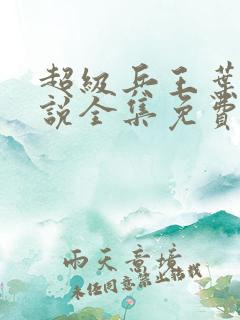 超级兵王葉
说全集免費
雨天意境
未经同意禁止转载